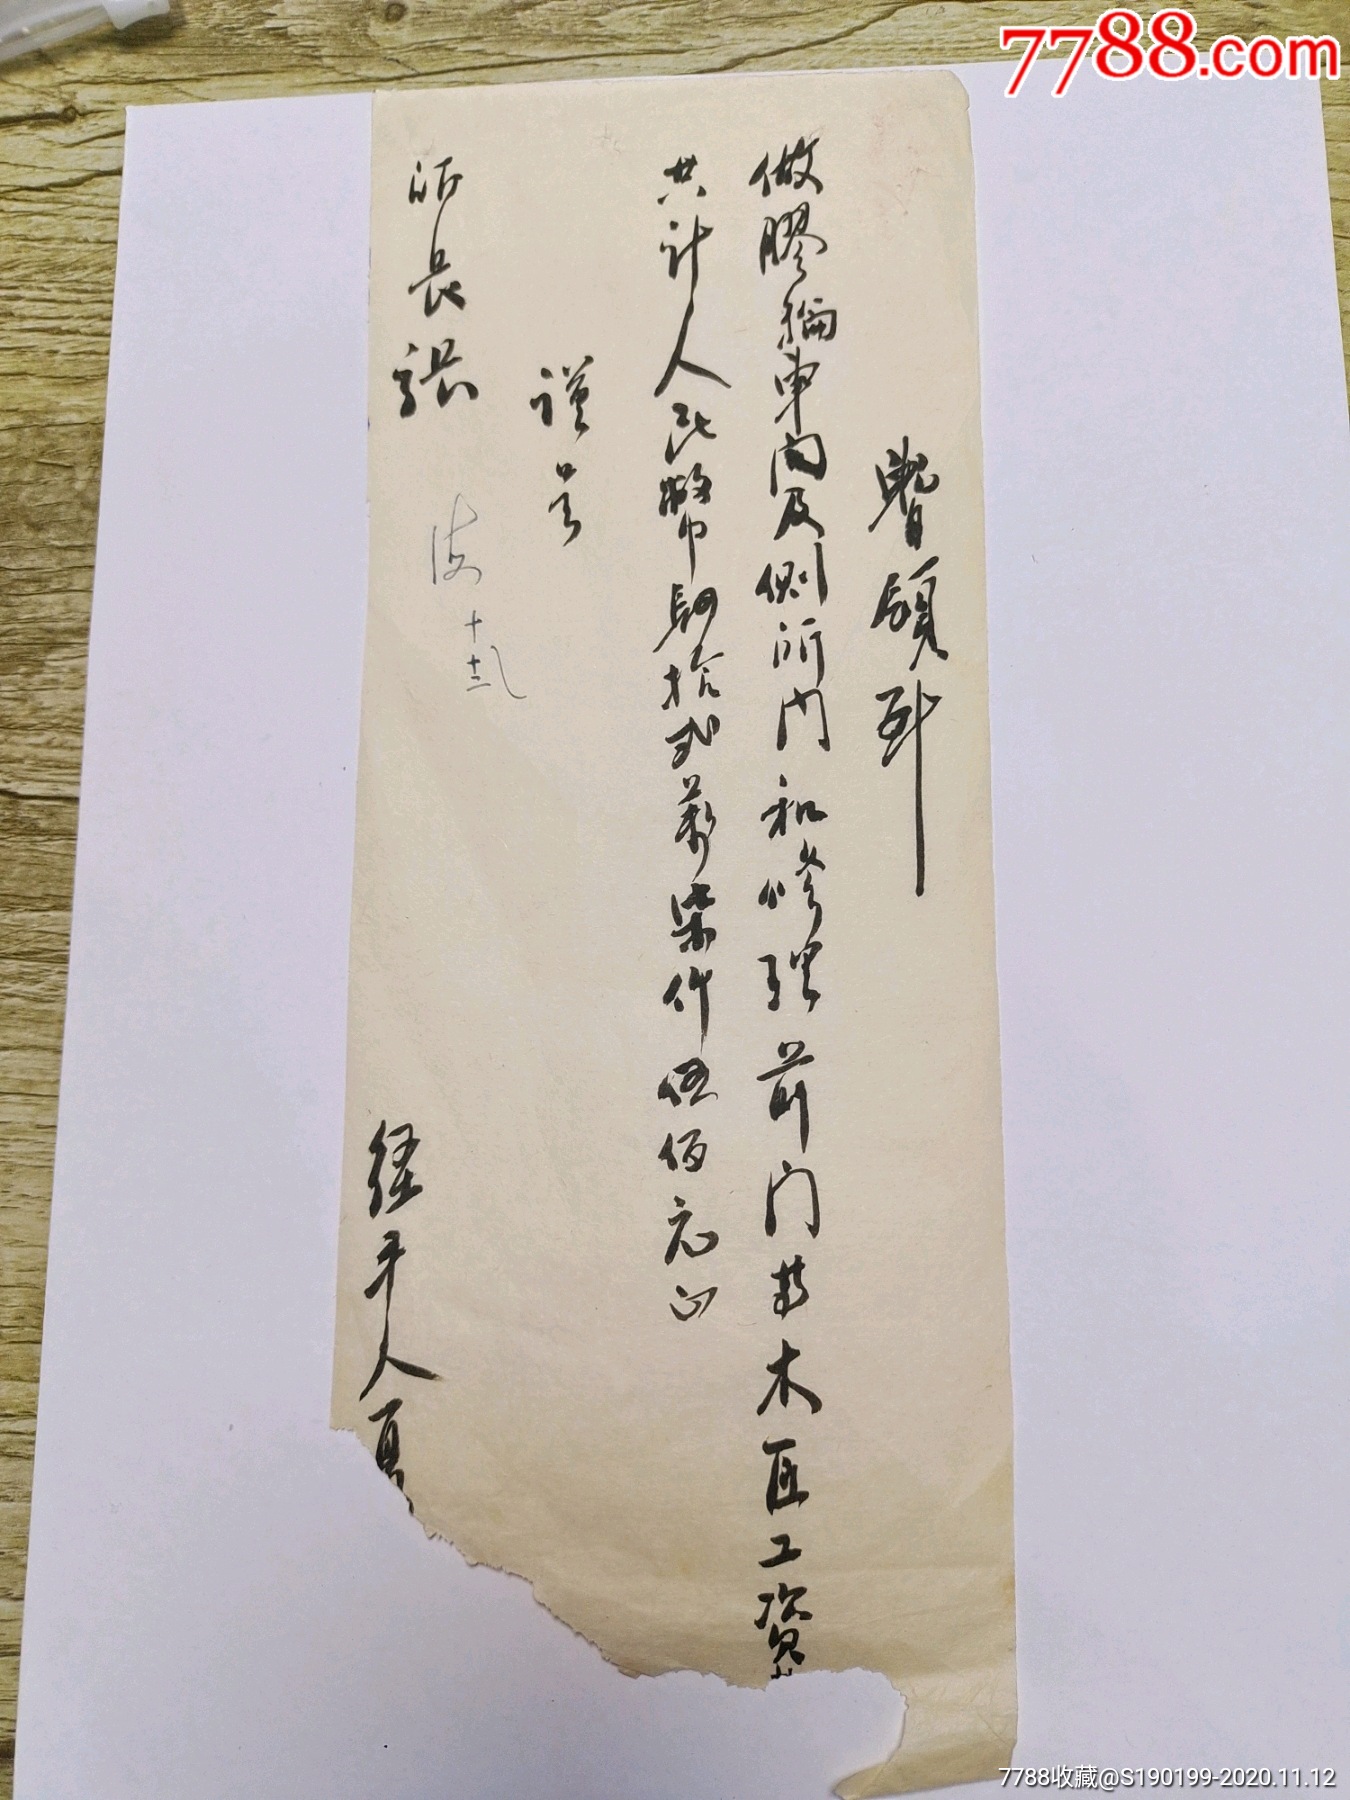 7788.com
暫領到
做膠輪車間及側所门和修理前门共木匠工資
共计人民幣肆拾弍萬柒仟伍佰元正
謹呈
所長張
经手人夏
7788收藏@S190199-2020.11.12